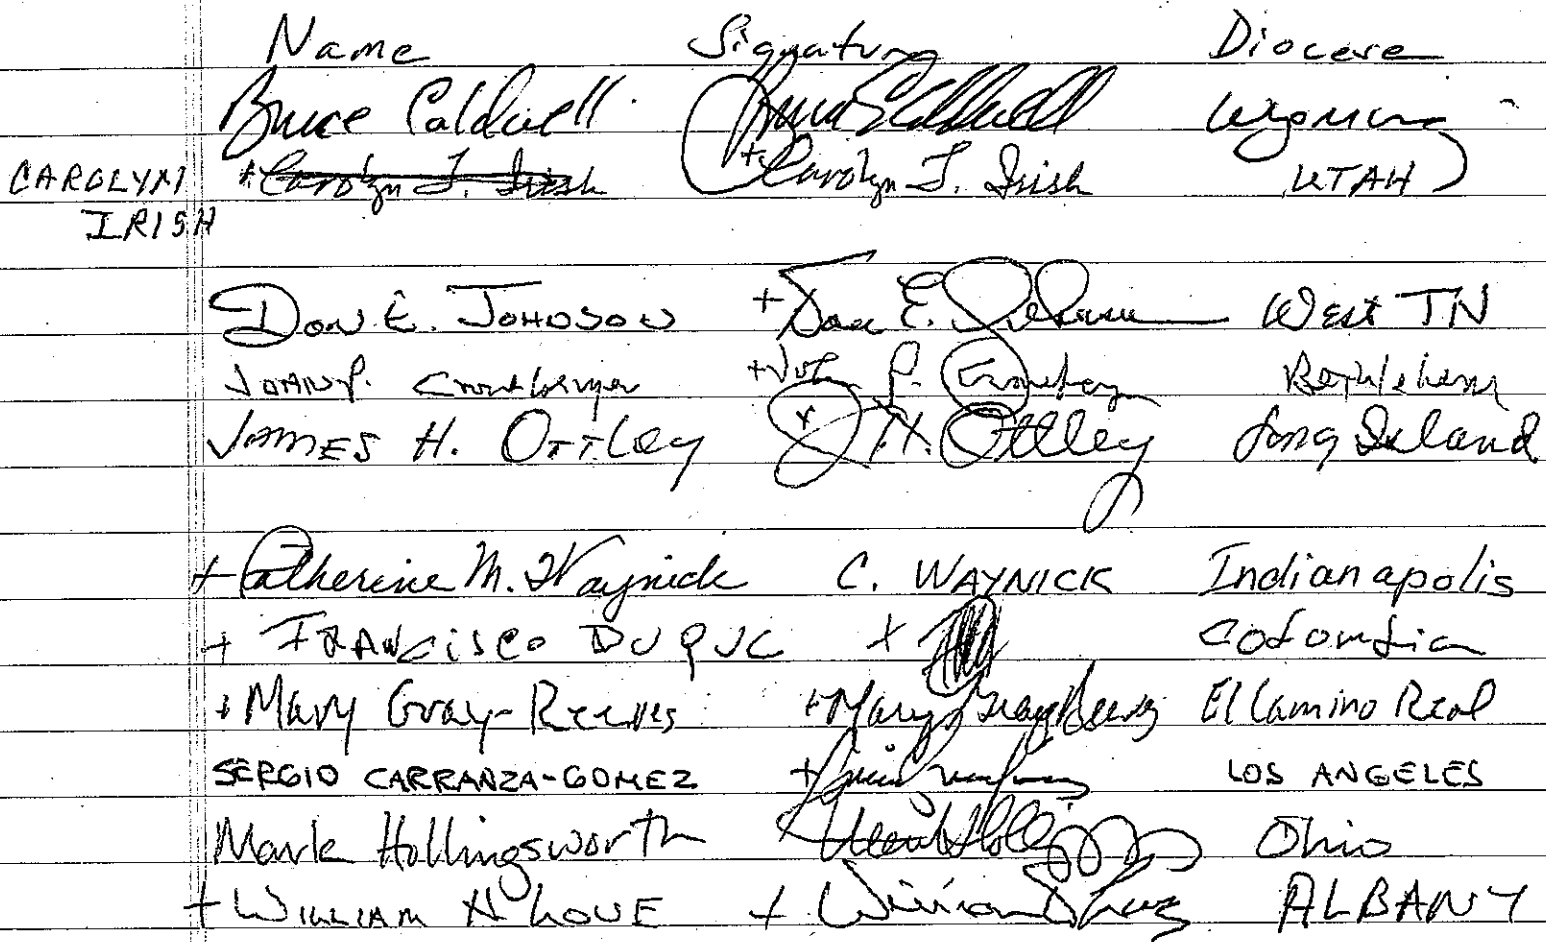 Name Signature Diocese
Bruce Caldwell Bruce Caldwell Wyoming
CAROLYN +Carolyn T. Irish +Carolyn T. Irish UTAH
IRISH
Don E. Johnson + Don E. Johnson West TN
John P. + John P. Bethlehem
JAMES H. OTTLEY + J. H. Ottley Long Island
+ Catherine M. Waynick C. WAYNICK Indianapolis
+ FRANCISCO DUQUE + Colombia
+ Mary Gray-Reeves + Mary Gray Reeves El Camino Real
SERGIO CARRANZA-GOMEZ + LOS ANGELES
Mark Hollingsworth Ohio
+ WILLIAM H LOVE + William Love ALBANY